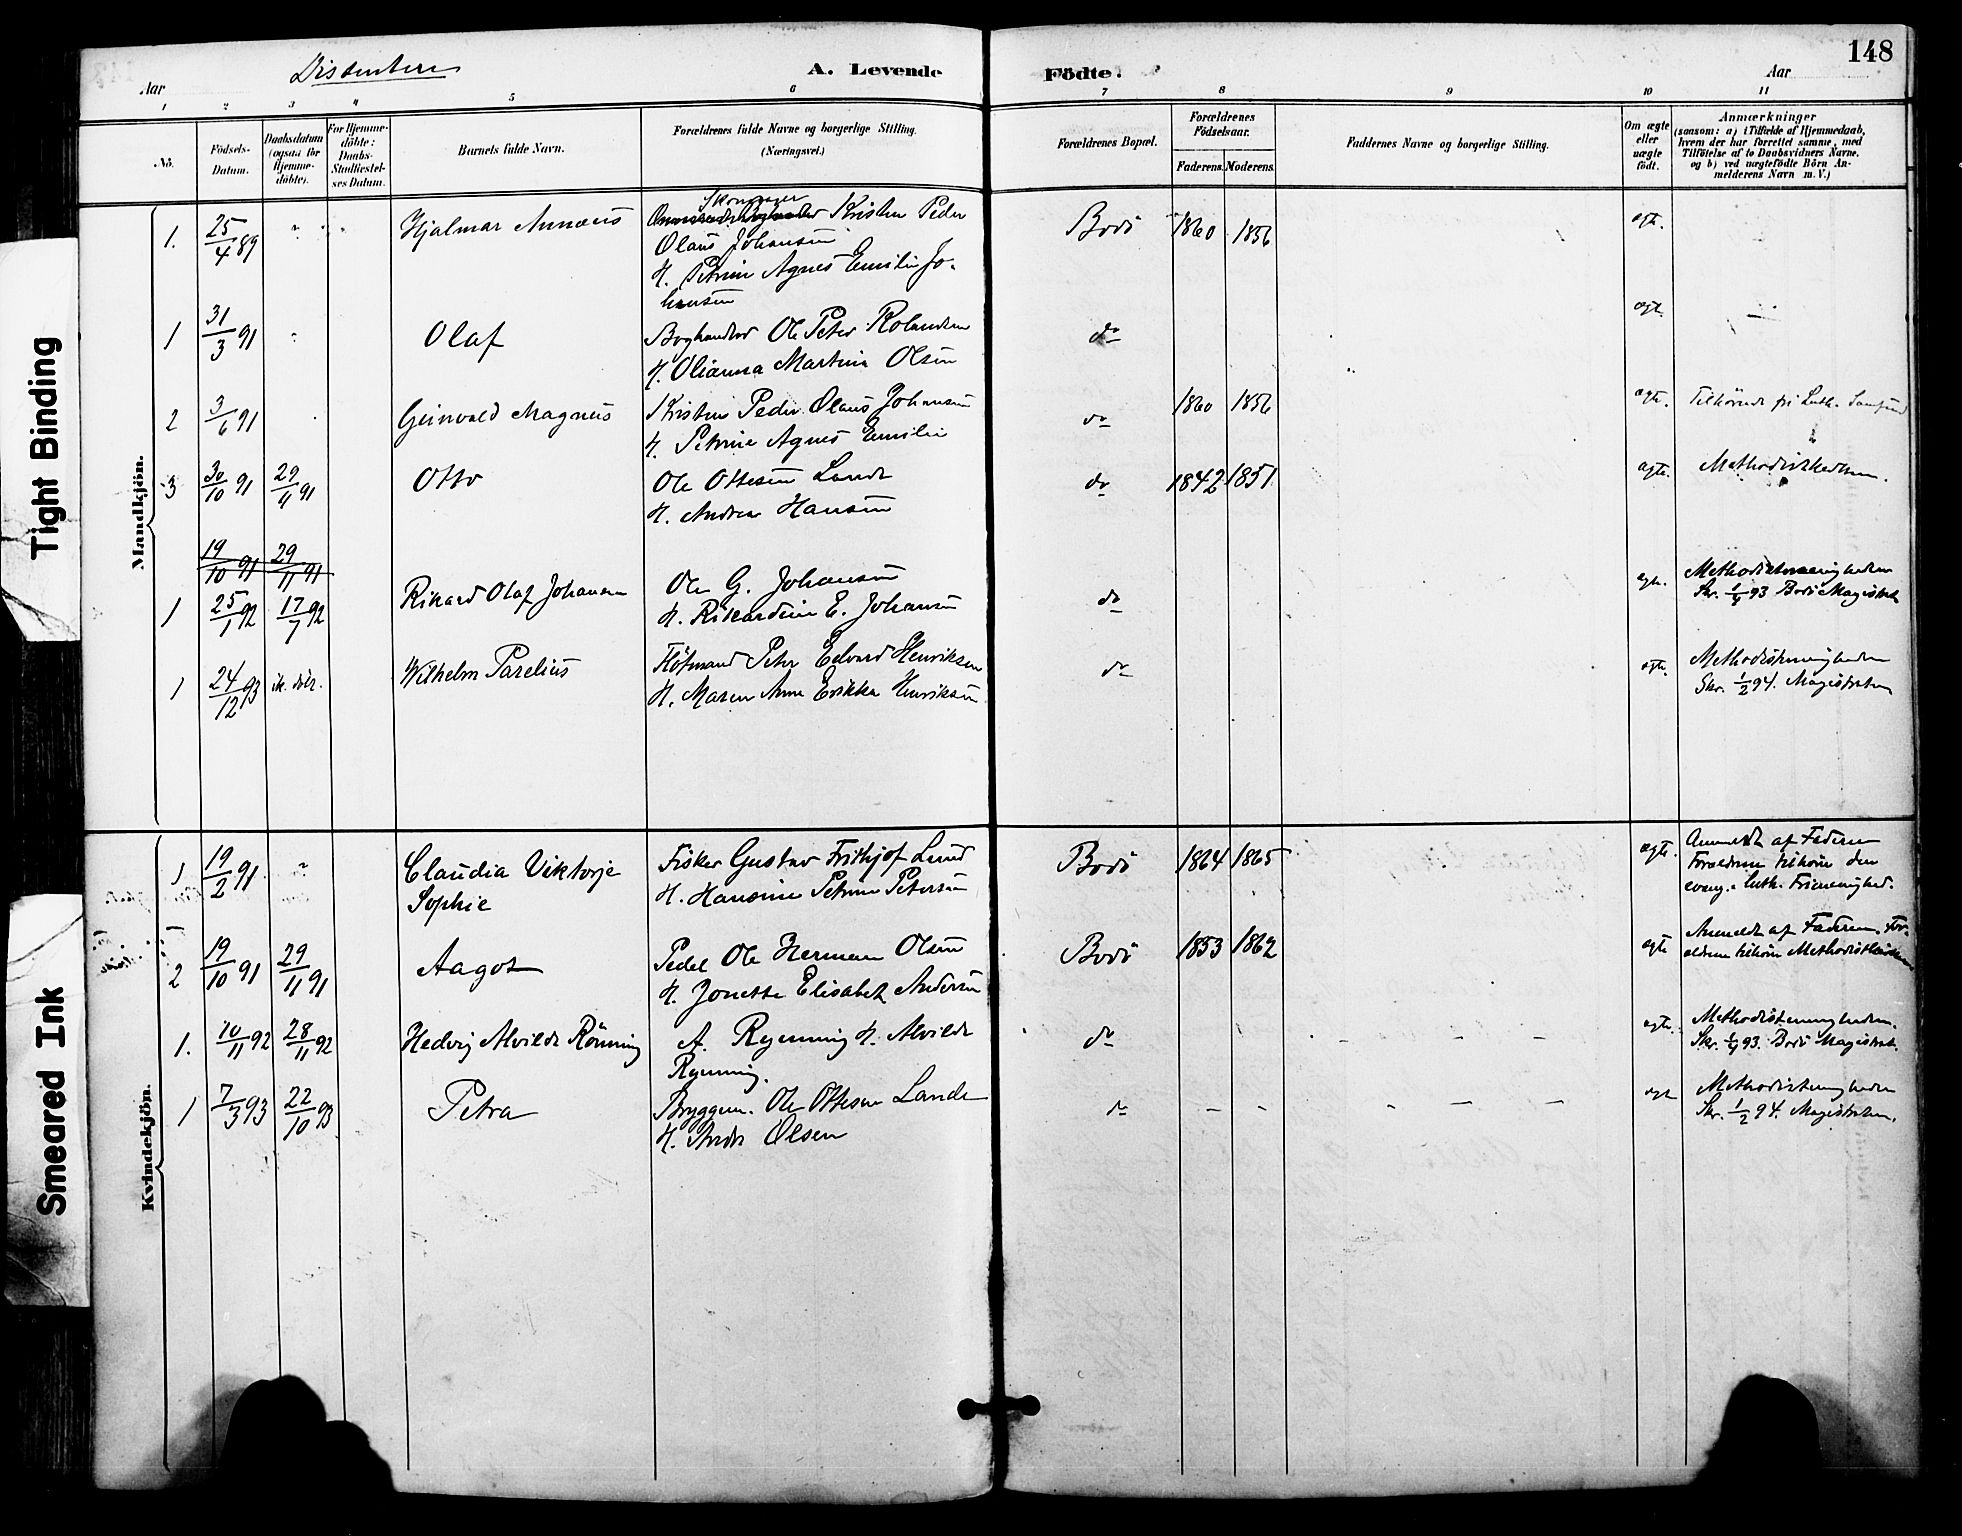 148
Dissentere
Aar
A. Levende
Födte.
Aar
1 2 3 4 5 6 7 8 9 10 11
No.
Födsels-Datum.
Daabsdatum (ogsaa for Hjemme-döbte).
For Hjemme-döbte: Daabs-Stadfæstel-ses Datum.
Barnets fulde Navn.
Forældrenes fulde Navne og borgerlige Stilling. (Næringsvei.)
Forældrenes Bopæl.
Forældrenes Födselsaar.
Faderens. Moderens.
Faddernes Navne og borgerlige Stilling.
Om ægte eller uægte födt.
Anmærkninger (saasom: a) i Tilfælde af Hjemmedaab, hvem der har forrettet samme, med Tilföielse af to Daabsvidners Navne, og b) ved uægtefödte Börn An-melderens Navn m. V.)
Mandkjön.
1. 25/4 89 Hjalmar Annæus
Kristen Peder
Olaus Johansen
H. Petrine Agnes Emilie Jo-
hansen
Bodö 1860 1856 ægt.
1 31/3 91 Olaf
Boghandler Ole Peter Rolandsen
H. Olianna Martine Olsen
do ægt. —
2 3/6 91 Geinvald Magnus
Kristen Peder Olaus Johansen
H. Petrine Agnes Emilie
do 1860 1856 ægte. Tilhörende fri Luth. Samfund
3 30/10 91 29/11 91 Otto
Ole Ottesen Lande
H. Andrea Hansen
do 1842 1851 ægte. Methodistkirken.
19/10 91 29/11 91
1 25/1 92 17/7 92 Rikard Olaf Johansen
Ole G. Johansen
H. Rikardine E. Johansen
do ægte. Methodistmenigheden
Skr. 1/4 93 Bodö Magistrat
1 24/12 93 ik. döbt. Wilhelm Parelius
Flötmand Peter Edvard Henriksen
H. Maren Anne Erikka Henriksen
do ægte. Methodistmenigheden
Skr. 1/2 94. Magistraten
Kvindekjön.
1 19/2 91 Claudia Viktorje
Sophie
Fisker Gustav Frithjof Lund
H. Hansine Petrine Petersen
Bodö 1864 1865 ægte. Anmeldt af Faderen
Forældrene tilhöre den
evang. Luth. Frimenighed.
2 19/10 91 29/11 91 Aagot
Pedel Ole Herman Olsen
H. Jonette Elisabeth Andersen
Bodö 1853 1862 ægte Anmeldt af Faderen. For-
ældrene tilhöre Methodistkirken
1. 10/11 92 28/11 92 Hedvig Alvilde Rönning
A. Rynning H. Alvilde
Rynning.
do ægte. Methodistmenigheden.
Skr. 1/4 93. Bodö Magistrat.
1 7/3 93 22/10 93 Petra
Bryggem. Ole Ottesen Lande
H. Andr. Olsen
do ægt Methodistmenigheden
Skr. 1/2 94. Magistraten.
Tight Binding
Smeared Ink